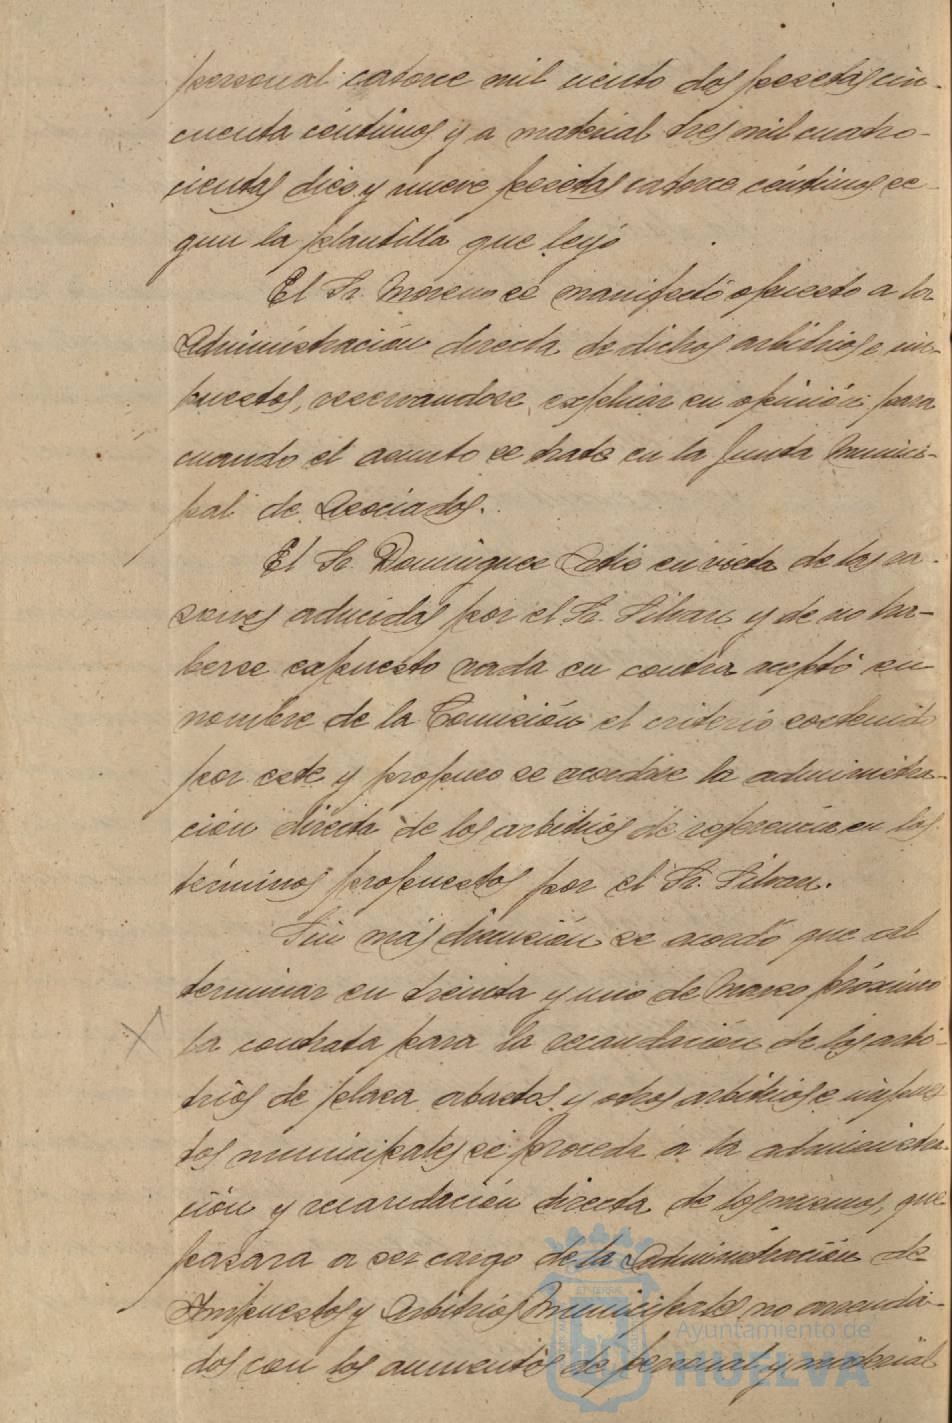 personal catorce mil ciento dos pesetas cin-
cuenta céntimos y a material tres mil cuatro-
cientas diez y nueve pesetas catorce céntimos se-
gun la plantilla que leyó
El Sr. Moreno se manifestó opuesto a la
Administración directa de dichos arbitrios e im-
puestos, reservandose explicar su opinión para
cuando el asunto se trate en la Junta Munici-
pal de Asociados.
El Sr. Dominguez en vista de las ra-
zones aducidas por el Sr. Silvan y de no ha-
berse expuesto nada en contra aceptó en
nombre de la Comisión el criterio sostenido
por este y propuso se acordase la administra-
ción directa de los arbitrios de referencia en los
términos propuestos por el Sr. Silvan.
Sin más discusión se acordó que al
terminar en treinta y uno de Marzo próximo
la contrata para la recaudación de los arbi-
trios de plaza abastos y otros arbitrios e impues
tos municipales se proceda a la administra-
ción y recaudación directa de los mismos, que
pasara a ser cargo de la Administración de
Impuestos y Arbitrios Municipales no arrenda-
dos con los aumentos de personal y material
Ayuntamiento de
HUELVA